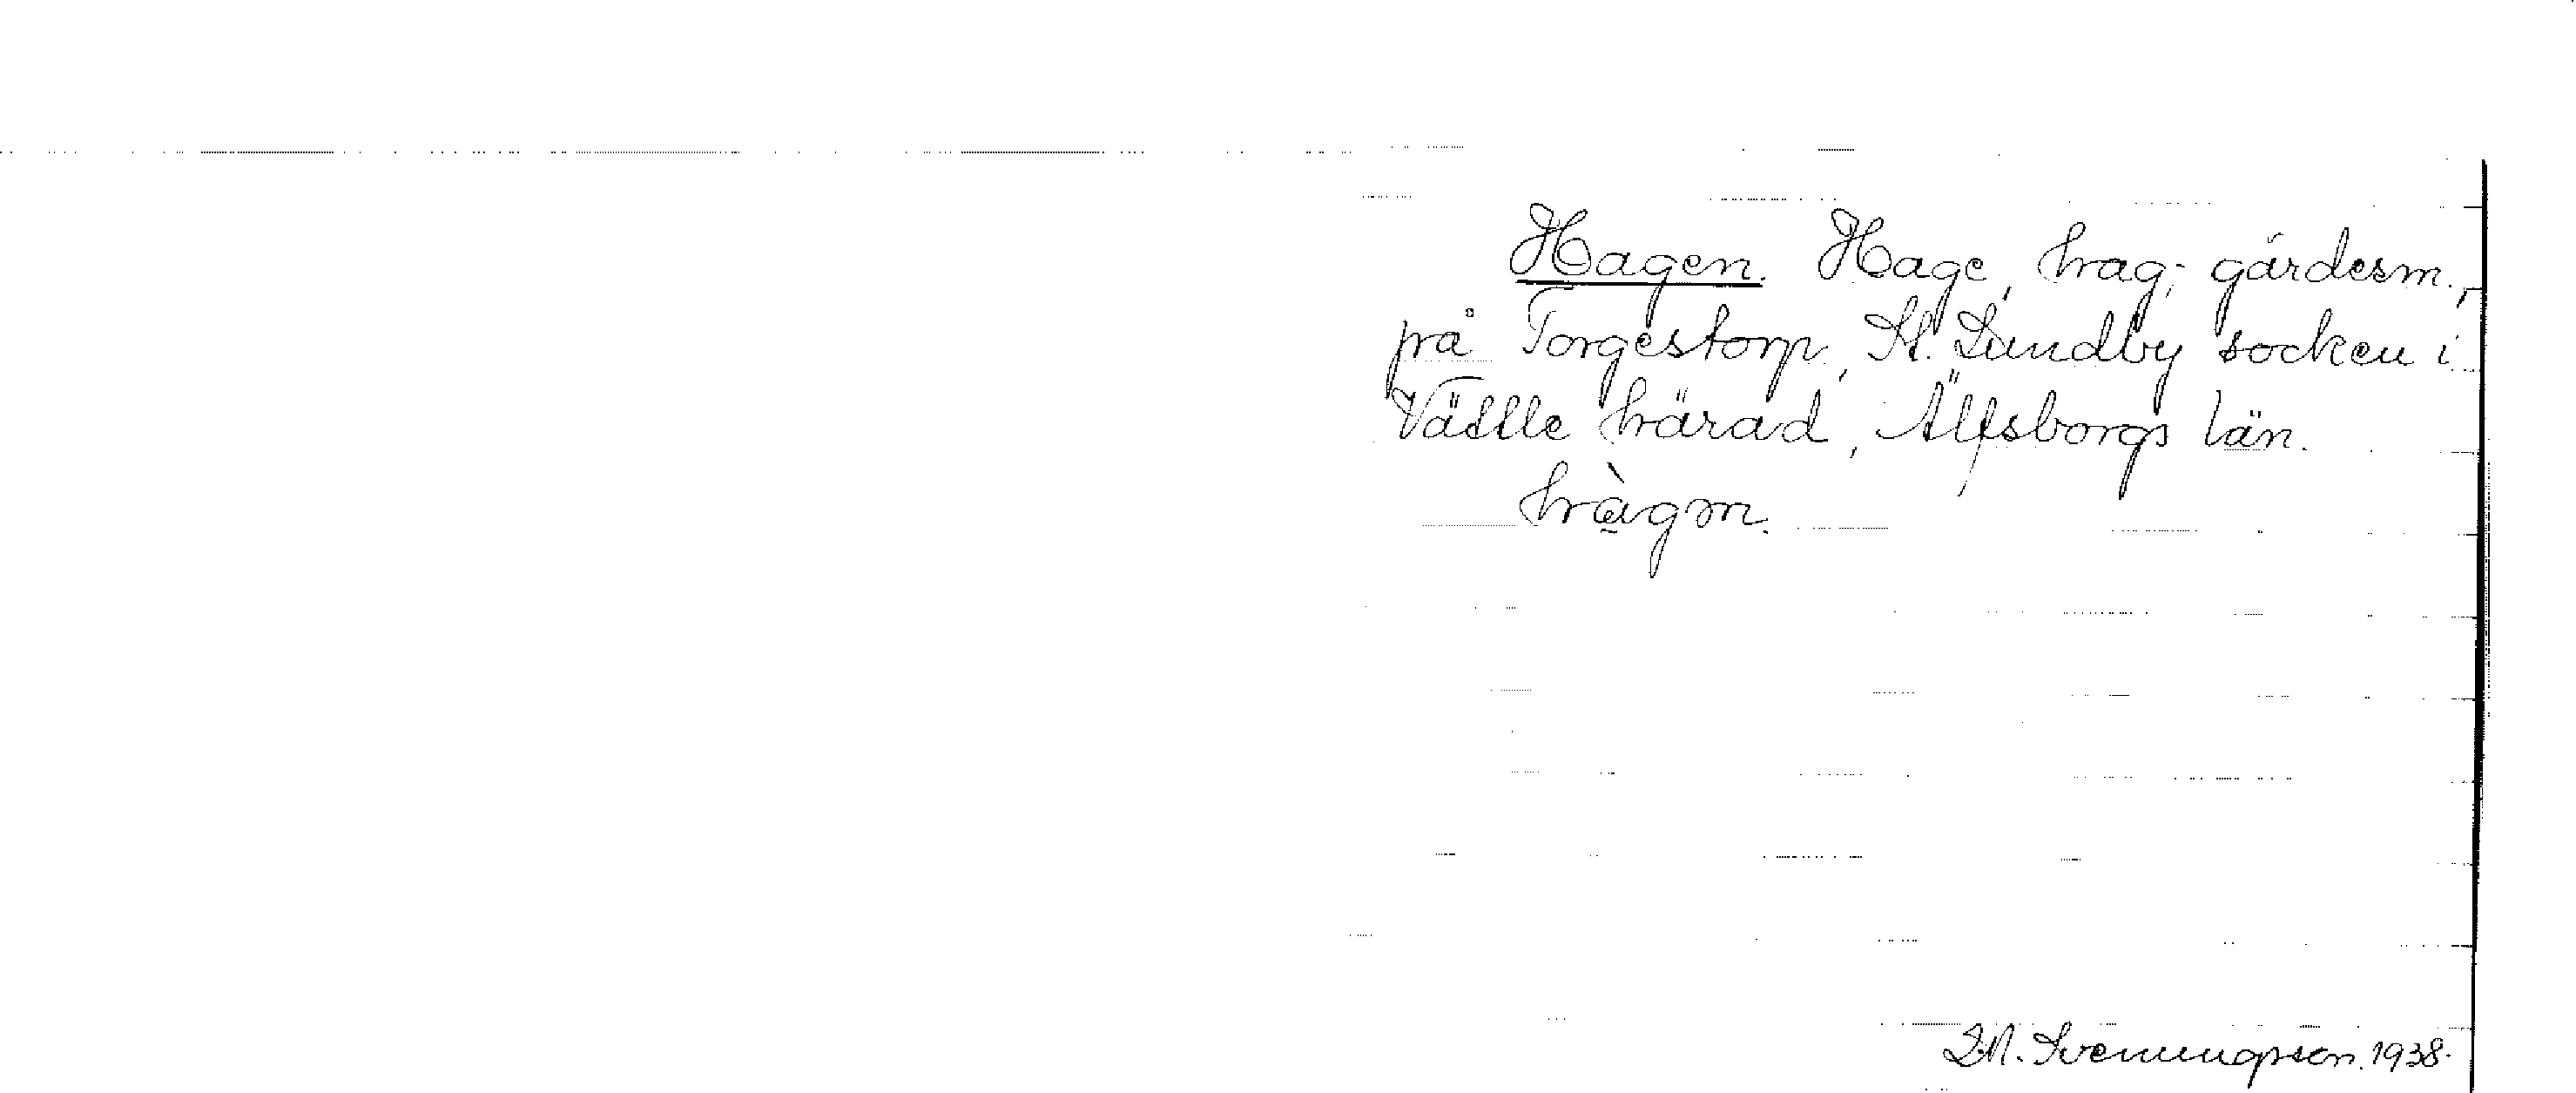 Hagen. Hage, hag, gärdesm.,
på Torgestorp, St. Lundby socken i
Vättle härad, Älfsborgs län.
hàgɔn.
Svenungsson. 1938.